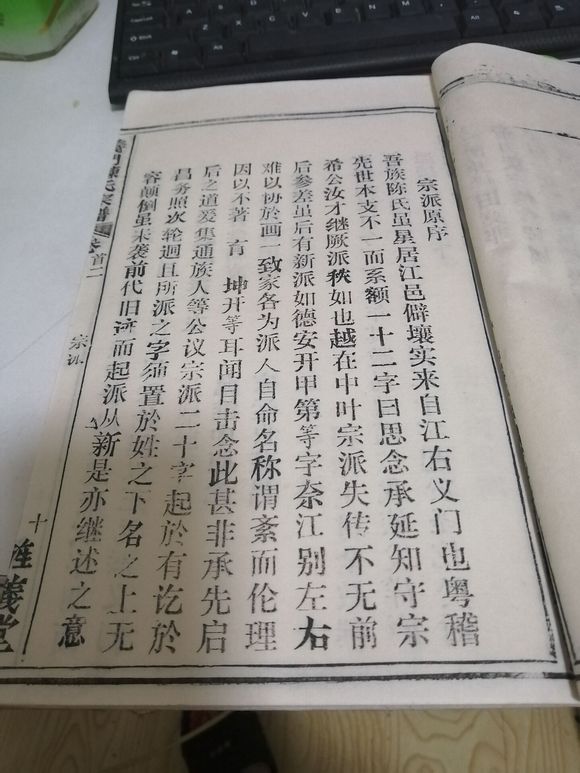 宗派原序
吾族陈氏虽星居江邑僻壤实来自江右义门也粤稽
先世本支不一而系额一十二字曰思念承延知守宗
希公汝才继厥派秩如也越在中叶宗派失传不无前
后参差虽后有新派如德安开甲第等字奈江别左右
难以协於画一致家各为派人自命名称谓紊而伦理
因以不著 育 坤开等耳闻目击念此甚非承先启
后之道爰集通族人等公议宗派二十字起於有讫於
昌务照次轮迴且所派之字须置於姓之下名之上无
容颠倒虽未袭前代旧迹而起派从新是亦继述之意
義门陳氏宗譜 卷首二
宗派
十
旌義堂